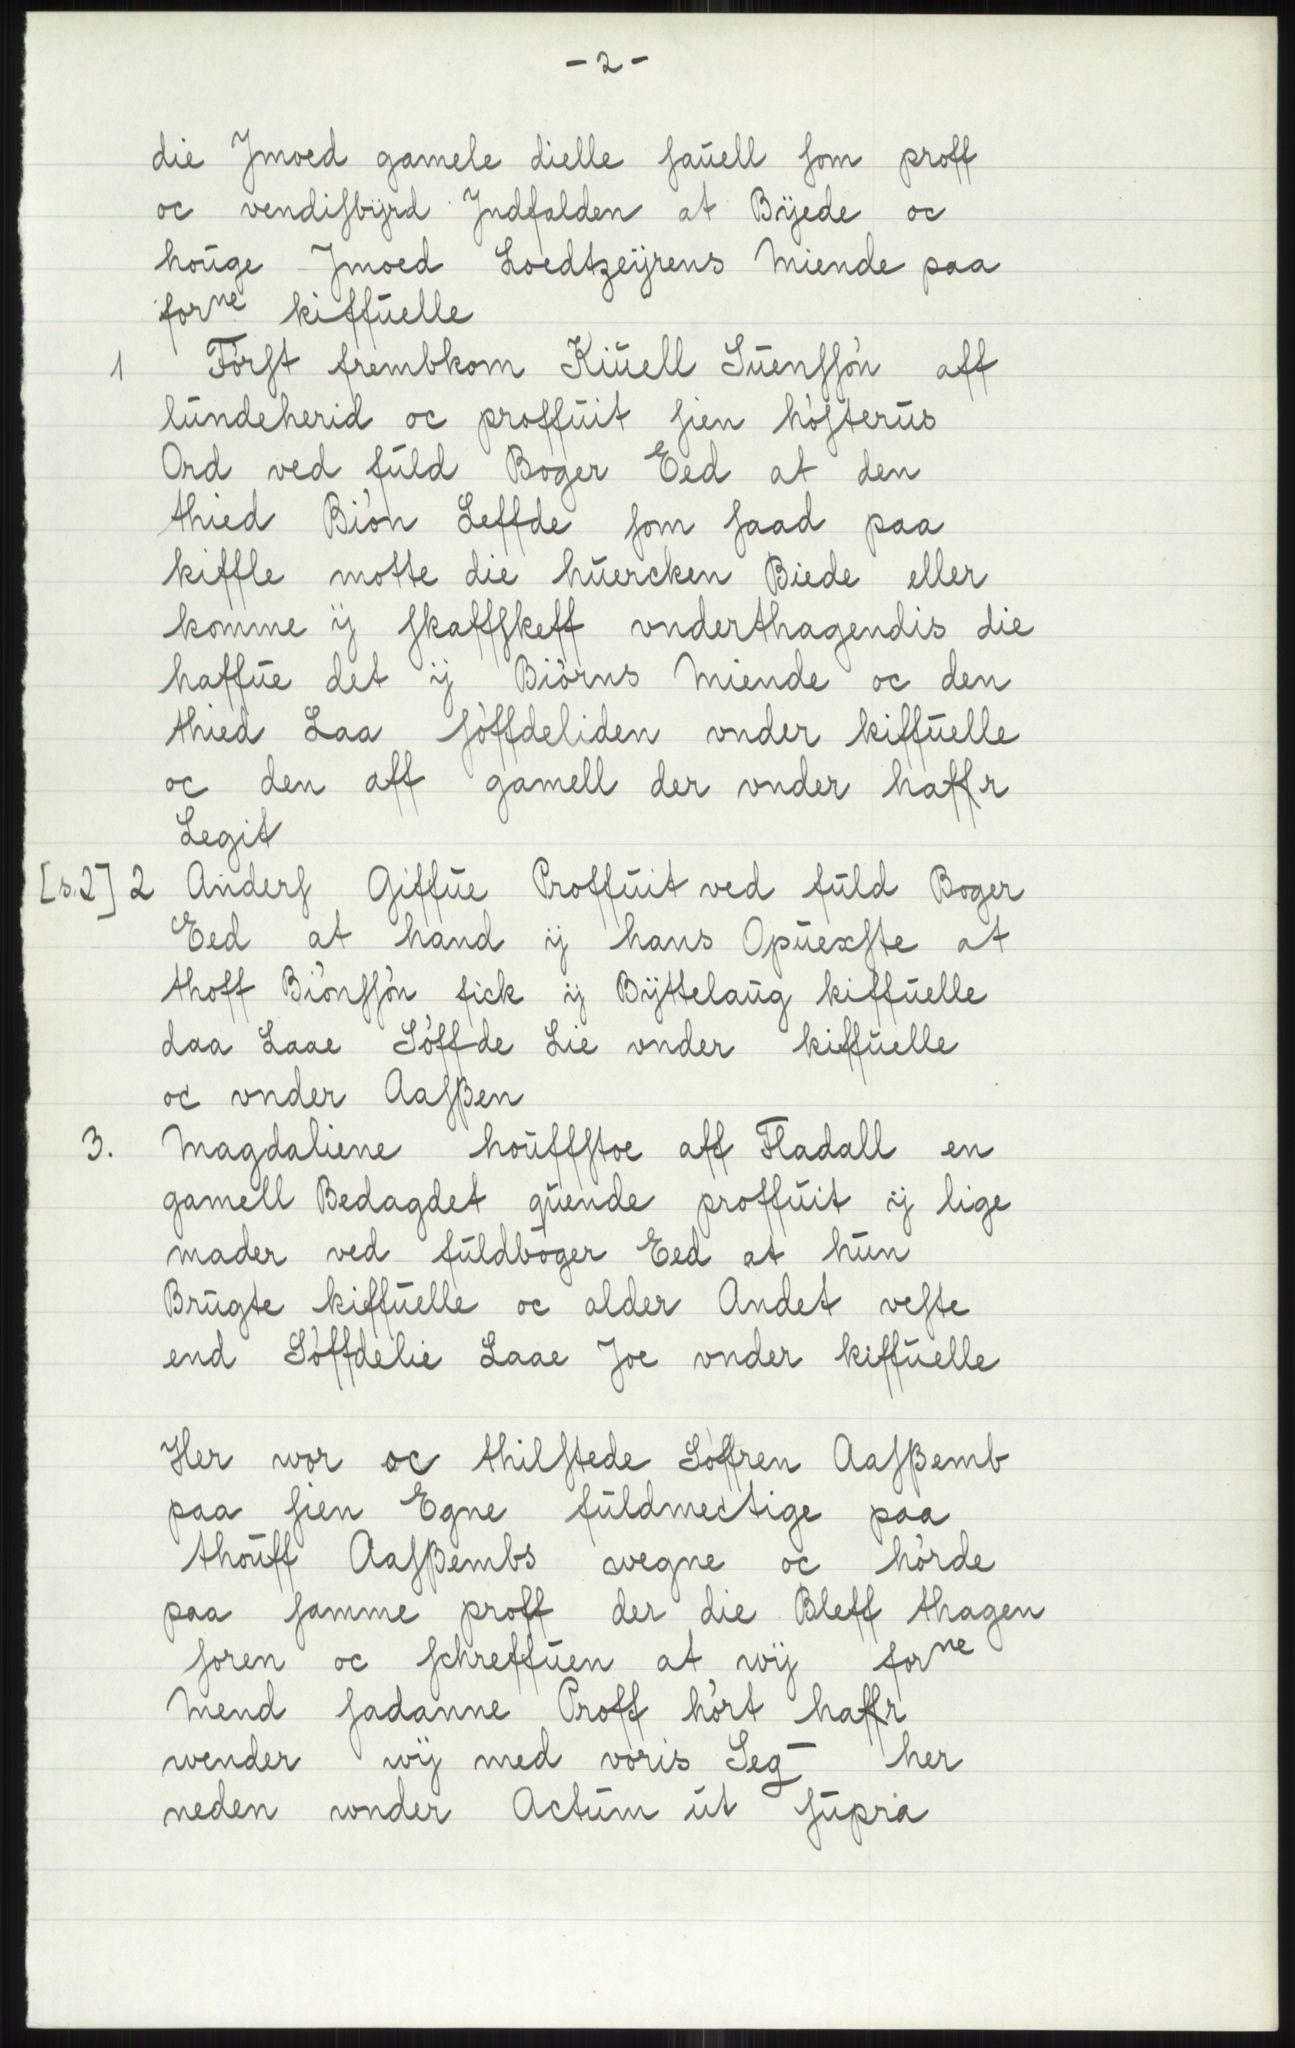 - 2 -
die Jmoed gamele dielle sauell som proff
oc vendisbyrd Jndfalden at Bÿede oc
houge Jmoed Loedtzeÿrens Miende paa
forne kiffuelle
1 Först frembkom Kiuell Suenssön aff
lundeherid oc proffuit sien hösterus
Ord ved fuld Boger Eed at den
thied Biön Leffde som saad paa
kiffle motte die huercken Biede eller
komme ij skaffskeff vnderthagendis die
haffue det ij Biörns Miende oc den
thied Laa söffdeliden vnder kiffuelle
oc den aff gamell der vnder haffr
Legit
[s.2] 2 Anders Giffue Proffuit ved fuld Boger
Eed at hand ij hans Opuexste at
thoff Biönssön fick ij Bÿttelaug kiffuelle
daa Laae Söffde Lie vnder kiffuelle
oc vnder Aasßen
3. Magdaliene houffstoe aff Fladall en
gamell Bedagdet quende proffuit ij lige
mader ved fuldboger Eed at hun
Brugte kiffuelle oc alder Andet veste
end Söffdelie Laae Joe vnder kiffuelle
Her wor oc thilstede Söffren Aasßemb
paa sien Egne fuldmectige paa
thouff Aasßembs wegne oc hörde
paa samme proff der die Bleff thagen
soren oc schreffuen at wij forne
Mend sadanne Proff hört haffr
wender wij med voris Seg her
neden wnder Actum ut supra